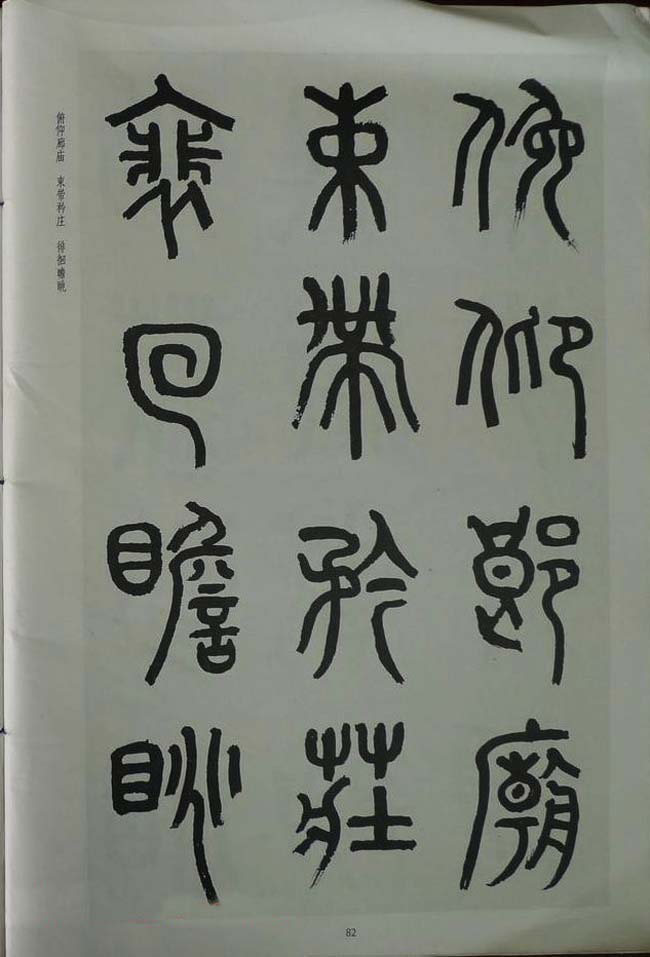 俛仰郎廟
束帶矜莊
裵回瞻眺
俯仰廊庙 束带矜庄 徘徊瞻眺
82